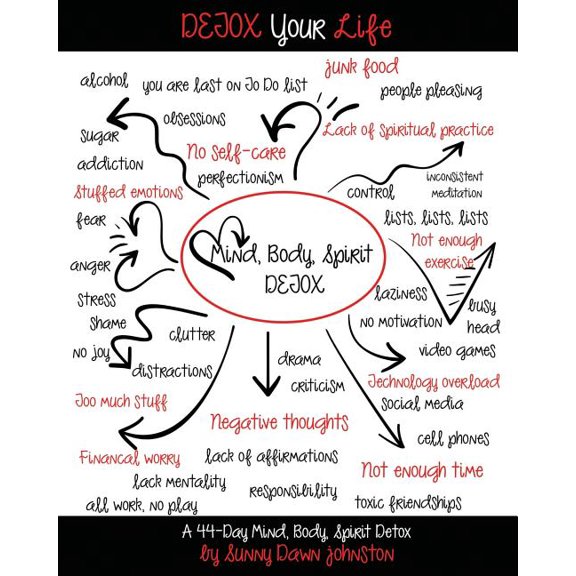 DETOX Your Life
alcohol
you are last on To Do list
junk food
people pleasing
obsessions
sugar
Lack of spiritual practice
No self-care
addiction
perfectionism
inconsistent
meditation
control
stuffed emotions
fear
lists, lists, lists
Not enough
exercise
Mind, Body, Spirit
DETOX
anger
stress
laziness
busy
head
shame
no motivation
clutter
no joy
video games
drama
distractions
criticism
Technology overload
Too much stuff
social media
Negative thoughts
cell phones
Financal worry
lack of affirmations
Not enough time
lack mentality
responsibility
all work, no play
toxic friendships
A 44-Day Mind, Body, Spirit Detox
by Sunny Dawn Johnston